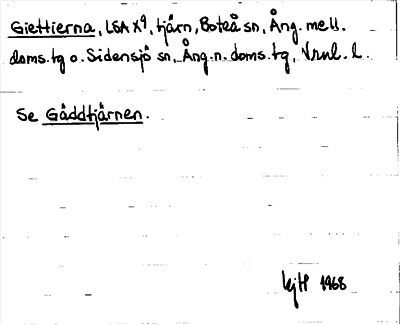 Giettierna, LSA X9, tjärn, Boteå sn, Ång. mell.
doms.tg o. Sidensjö sn, Ång. n. doms. tg, Vrnl. l.
Se Gäddtjärnen.
HjtP 1968